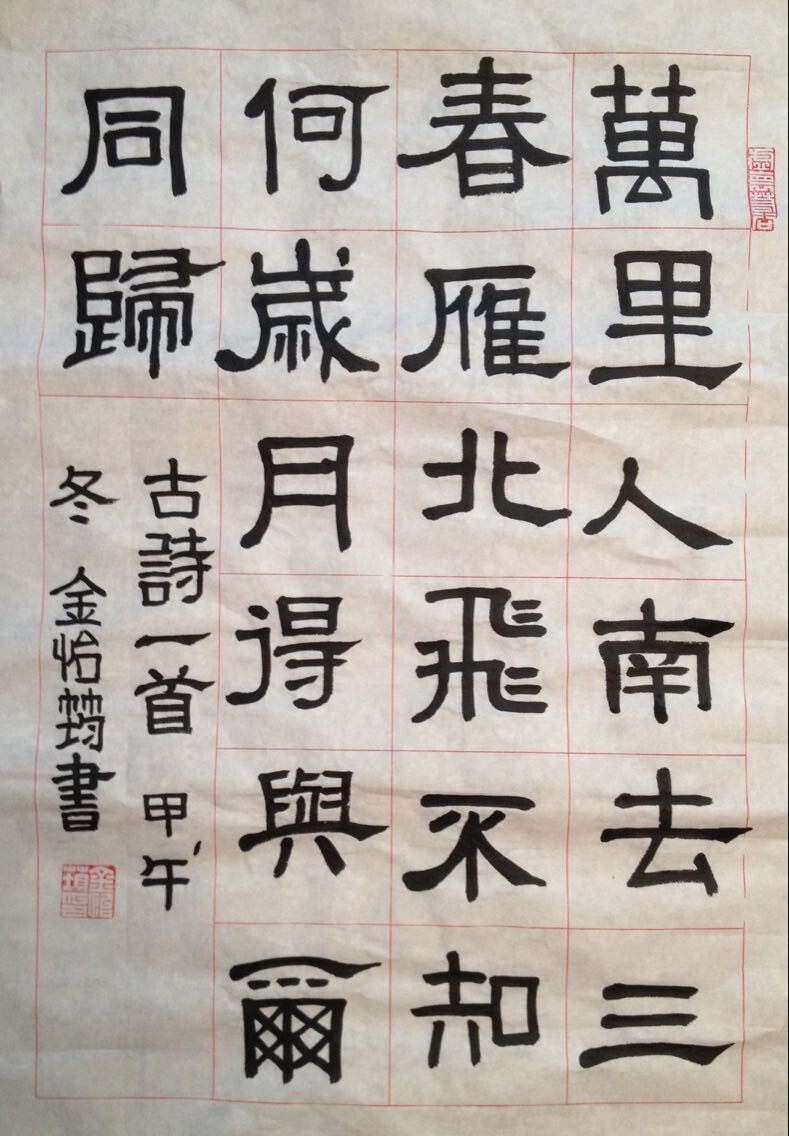 萬里人南去三
春雁北飛不知
何歲月得與爾
同歸
古詩一首 甲午
冬 金怡筠書